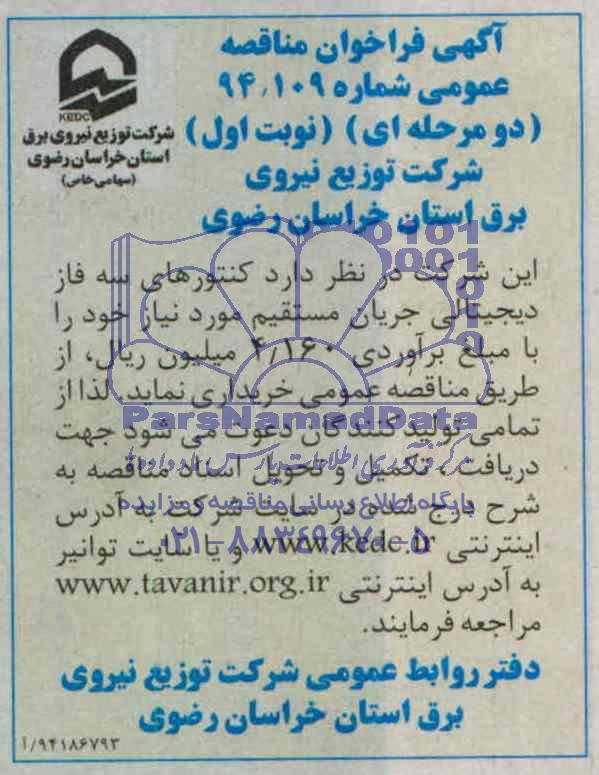 آگهی فراخوان مناقصه
عمومی شماره ۹۴.۱۰۹
(دو مرحله ای) (نوبت اول)
شرکت توزیع نیروی
برق استان خراسان رضوی
KEDC
شرکت توزیع نیروی برق
استان خراسان رضوی
(سهامی خاص)
این شرکت در نظر دارد کنتورهای سه فاز
دیجیتالی جریان مستقیم مورد نیاز خود را
با مبلغ برآوردی ۴/۱۶۰ میلیون ریال، از
طریق مناقصه عمومی خریداری نماید. لذا از
ParsNamadData
تمامی تولیدکنندگان دعوت می شود جهت
دریافت، تکمیل و تحویل اسناد مناقصه به
پایگاه اطلاع رسانی مناقصه و مزایده
شرح درج شده در سایت شرکت به آدرس
۰۲۱-۸۸۳۴۹۶۷۰-۵
اینترنتی www.kedc.ir و یا سایت توانیر
به آدرس اینترنتی www.tavanir.org.ir
مراجعه فرمایند.
دفتر روابط عمومی شرکت توزیع نیروی
برق استان خراسان رضوی
۹۴۱۸۶۷۹۳/آ